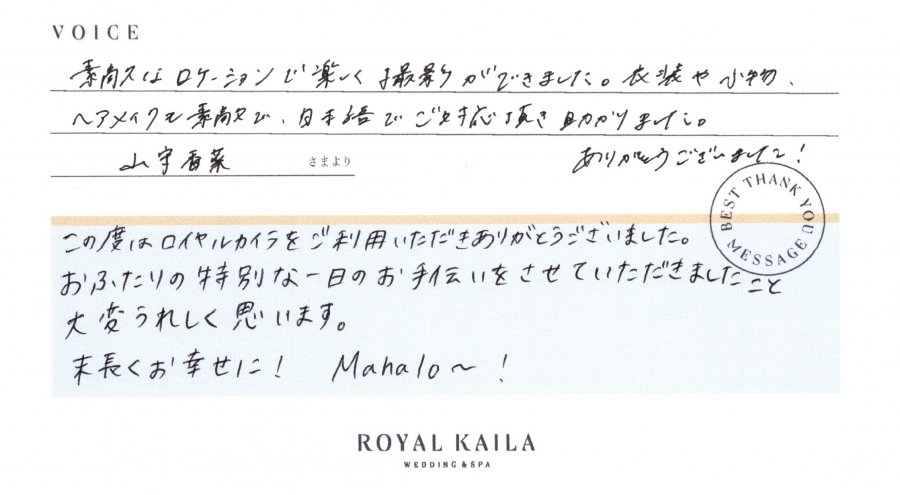 VOICE
素敵なロケーションで楽しく撮影ができました。衣装や小物、
ヘアメイクも素敵で、日本語でご対応頂き助かりました。
さまより
ありがとうございました!
BEST THANK YOU MESSAGE
この度はロイヤルカイラをご利用いただきありがとうございました。
おふたりの特別な一日のお手伝いをさせていただきましたこと
大変うれしく思います。
末長くお幸せに! Mahalo〜!
ROYAL KAILA
WEDDING & SPA